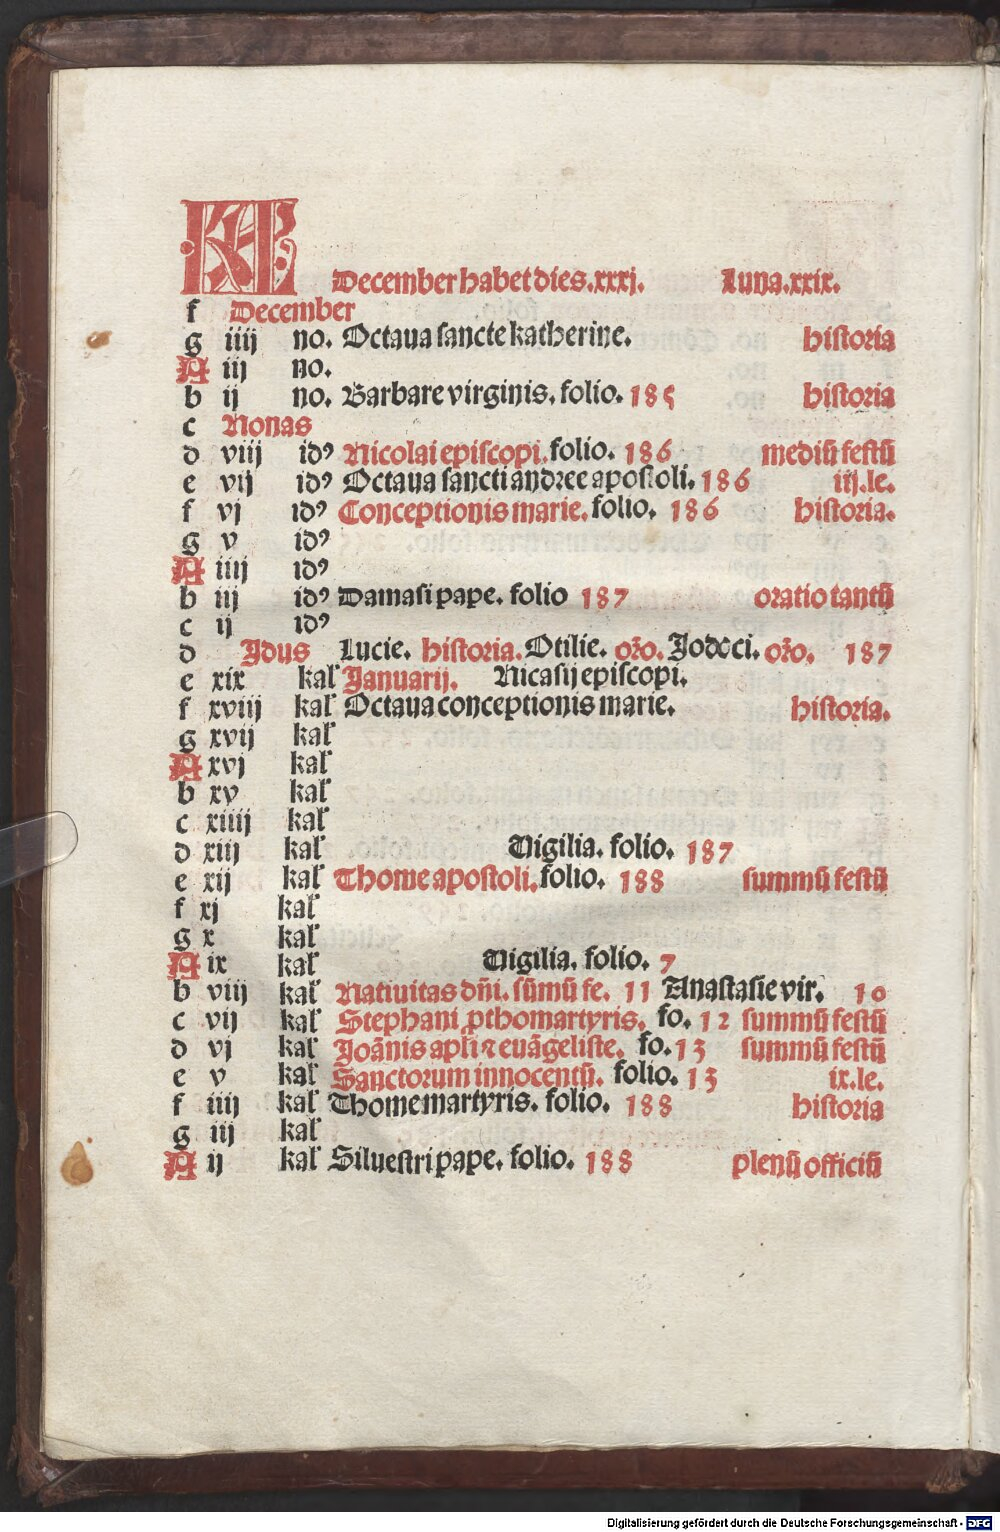 KL December habet dies.xxxj. Luna.xxix.
f December
g iiij no. Octaua sancte katherine. historia
A iij no.
b ij no. Barbare virginis. folio. 185 historia
c Nonas
d viij idꝰ Nicolai episcopi. folio. 186 mediū festū
e vij idꝰ Octaua sancti andree apostoli. 186 iij.le.
f vj idꝰ Conceptionis marie. folio. 186 historia.
g v idꝰ
A iiij idꝰ
b iij idꝰ Damasi pape. folio 187 oratio tantū
c ij idꝰ
d Jdus Lucie. historia. Otilie. oŕo. Jodoci. oŕo. 187
e xix kal' Januarij. Nicasij episcopi.
f xviij kal' Octaua conceptionis marie. historia.
g xvij kal'
A xvj kal'
b xv kal'
c xiiij kal'
d xiij kal' Vigilia. folio. 187
e xij kal' Thome apostoli. folio. 188 summū festū
f xj kal'
g x kal'
A ix kal' Vigilia. folio. 7
b viij kal' Natiuitas dn̄i. sūmū fe. 11 Anastasie vir. 10
c vij kal' Stephani ꝓthomartyris. fo. 12 summū festū
d vj kal' Joānis apl̄i ⁊ euāgeliste. fo. 13 summū festū
e v kal' Sanctorum innocentū. folio. 13 ix.le.
f iiij kal' Thome martyris. folio. 188 historia
g iij kal'
A ij kal' Siluestri pape. folio. 188 plenū officiū
Digitalisierung gefördert durch die Deutsche Forschungsgemeinschaft - DFG